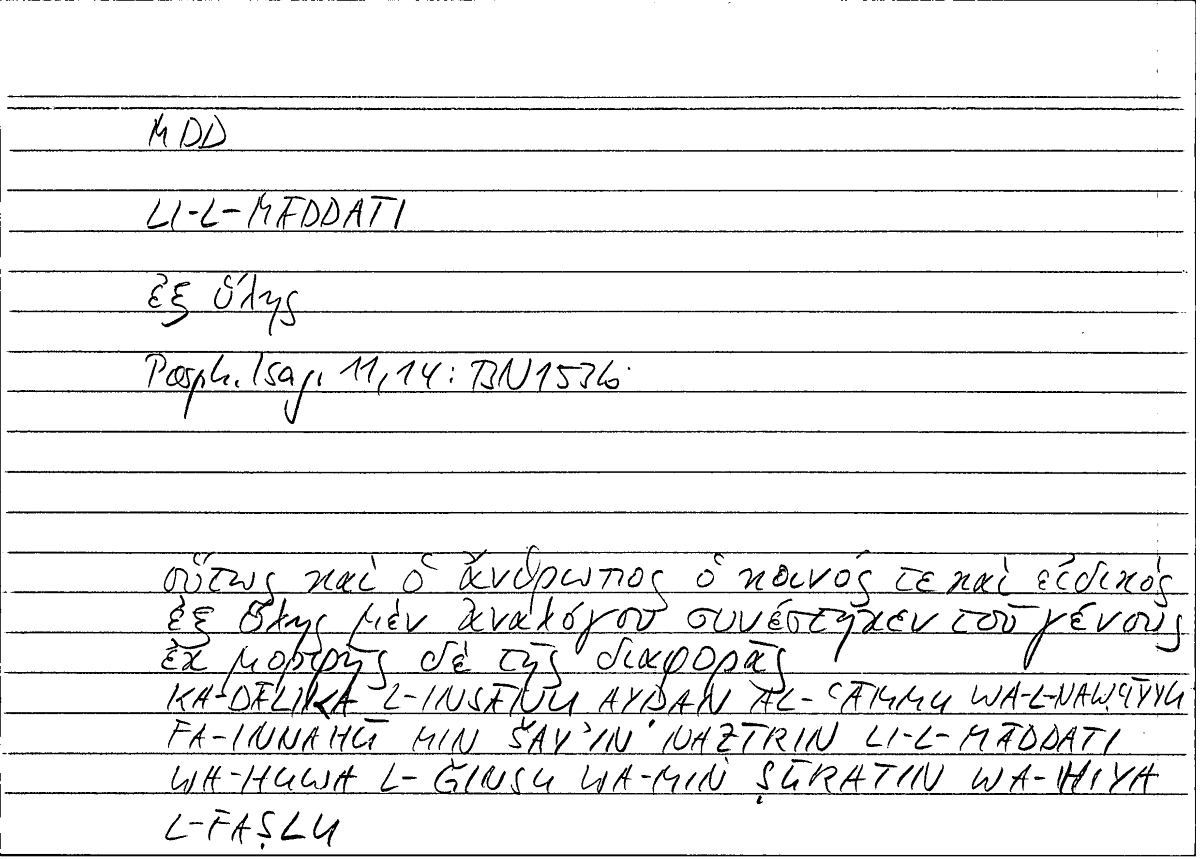 MDD
LI-L-MĀDDATI
ἐξ ὕλης
Porph. Isag. 11,14: BN153b
οὕτως καὶ ὁ ἄνθρωπος ὁ κοινός τε καὶ εἰδικὸς
ἐξ ὕλης μὲν ἀναλόγου συνέστηκεν τοῦ γένους
ἐκ μορφῆς δὲ τῆς διαφορᾶς
KA-ḎĀLIKA L-INSĀNU AYḌAN AL-ʿĀMMU WA-L-NAWʿĪYU
FA-INNAHŪ MIN ŠAYʾIN NAẒĪRIN LI-L-MĀDDATI
WA-HUWA L-ǦINSU WA-MIN ṢŪRATIN WA-HIYA
L-FAṢLU